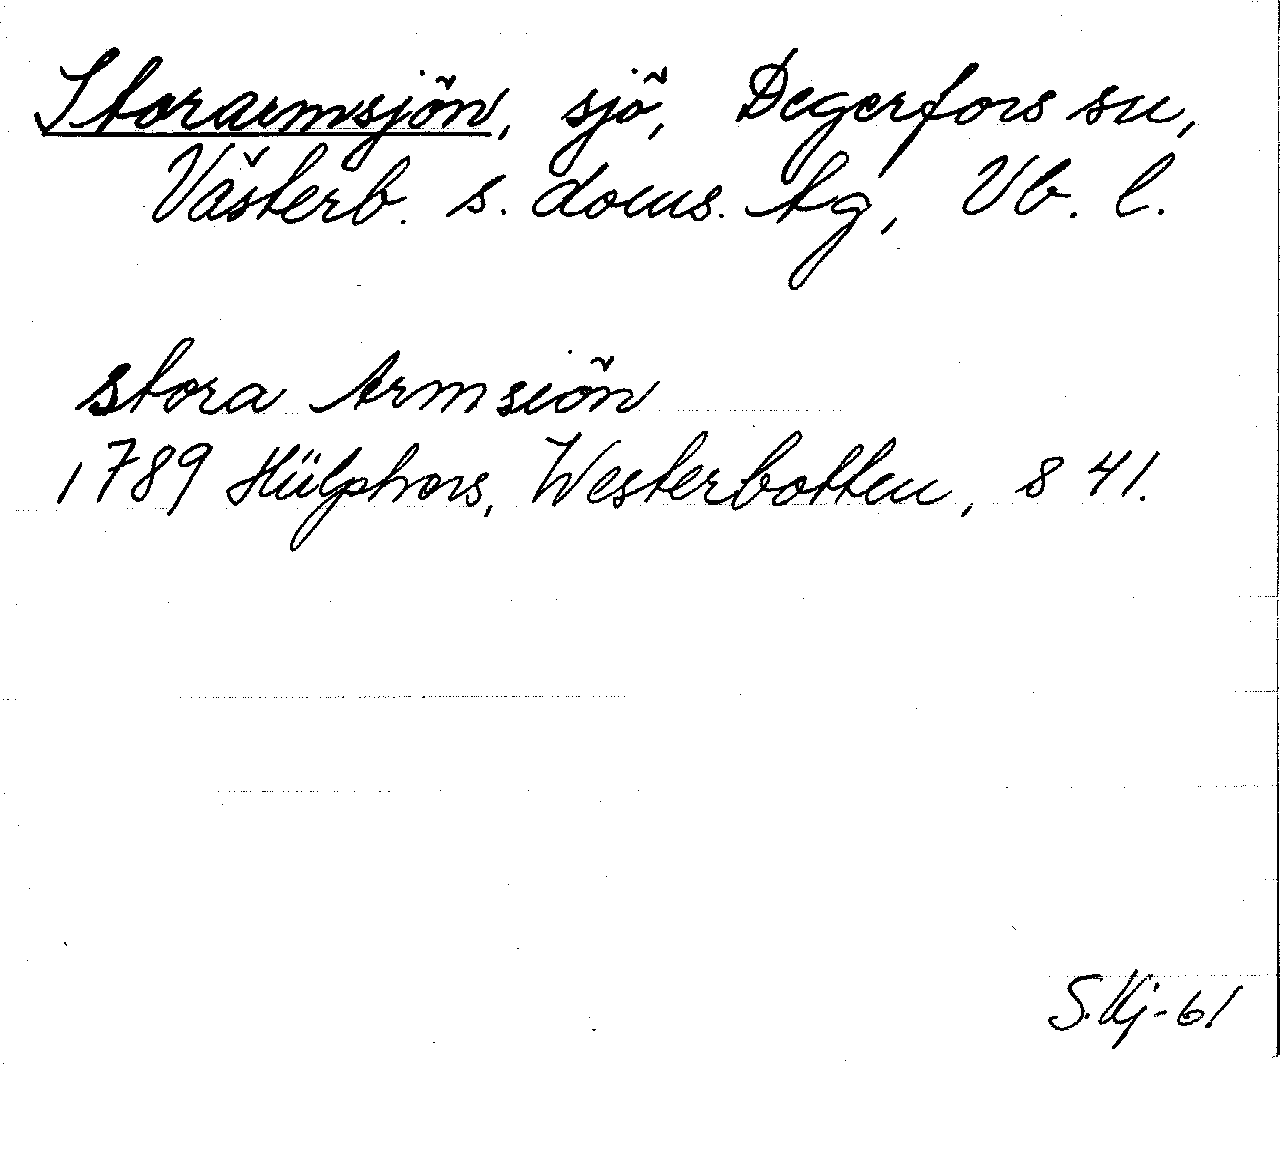 Storarmsjön, sjö, Degerfors sn,
Västerb. s. doms. tg, Vb. l.
stora Armsiön
1789 Hülphers, Westerbotten, s 41.
S.Kj-61